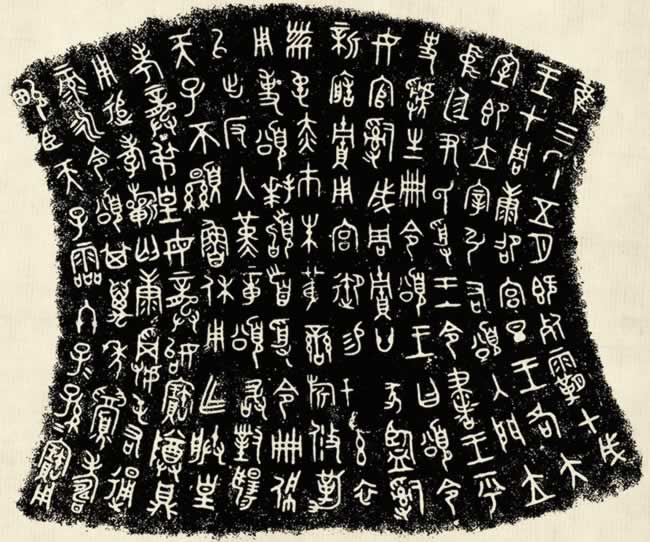 隹三年五月既死霸甲戌
王才周康卲宮旦王各大
室即立宰引右頌入門立
中廷尹氏受王令書王乎
史虢生冊令頌王曰頌令
女官𤔲成周貯廿家監𤔲
新造貯用宮御易女玄衣
黹屯赤巿朱黃䜌旂攸勒
用事頌拜𩒨首受令冊佩
以出反入堇章頌敢對揚
天子不顯魯休用乍朕皇
考龔弔皇母龔始寶尊鼎
用追孝祈匄康𩁹屯右通
彔永令頌其萬年眉壽
畯臣天子霝冬子=孫=寶用